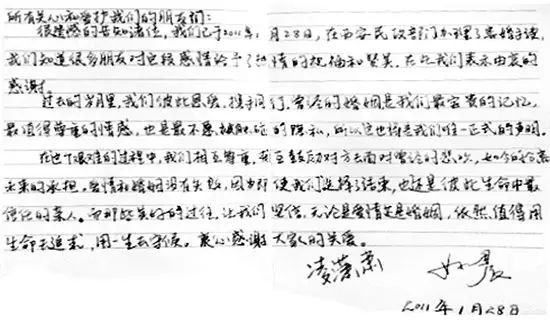 所有关心和爱护我们的朋友们：
很遗憾的告知诸位，我们已于2011年1月28日，在西安民政部门办理了离婚手续，
我们知道很多朋友对这段感情给予了热情的祝福和赞美，在此我们表示由衷的
感谢。
过去的岁月里，我们彼此恩爱，携手同行，曾经的婚姻是我们最宝贵的记忆，
最值得尊重的情感，也是最不愿被触碰的隐私，所以这也将是我们唯一正式的声明。
在这个艰难的过程中，我们相互尊重，并且鼓励对方去面对曾经的悲欢，如今的分离
未来的承担。爱情和婚姻没有失败，因为即使我们选择了结束，也还是彼此生命中最
信任的亲人。而那些美好的过往，让我们坚信，无论是爱情还是婚姻，依然值得用
生命去追求，用一生去守候。衷心感谢大家的关爱。
凌潇肃 姚晨
2011年1月28日